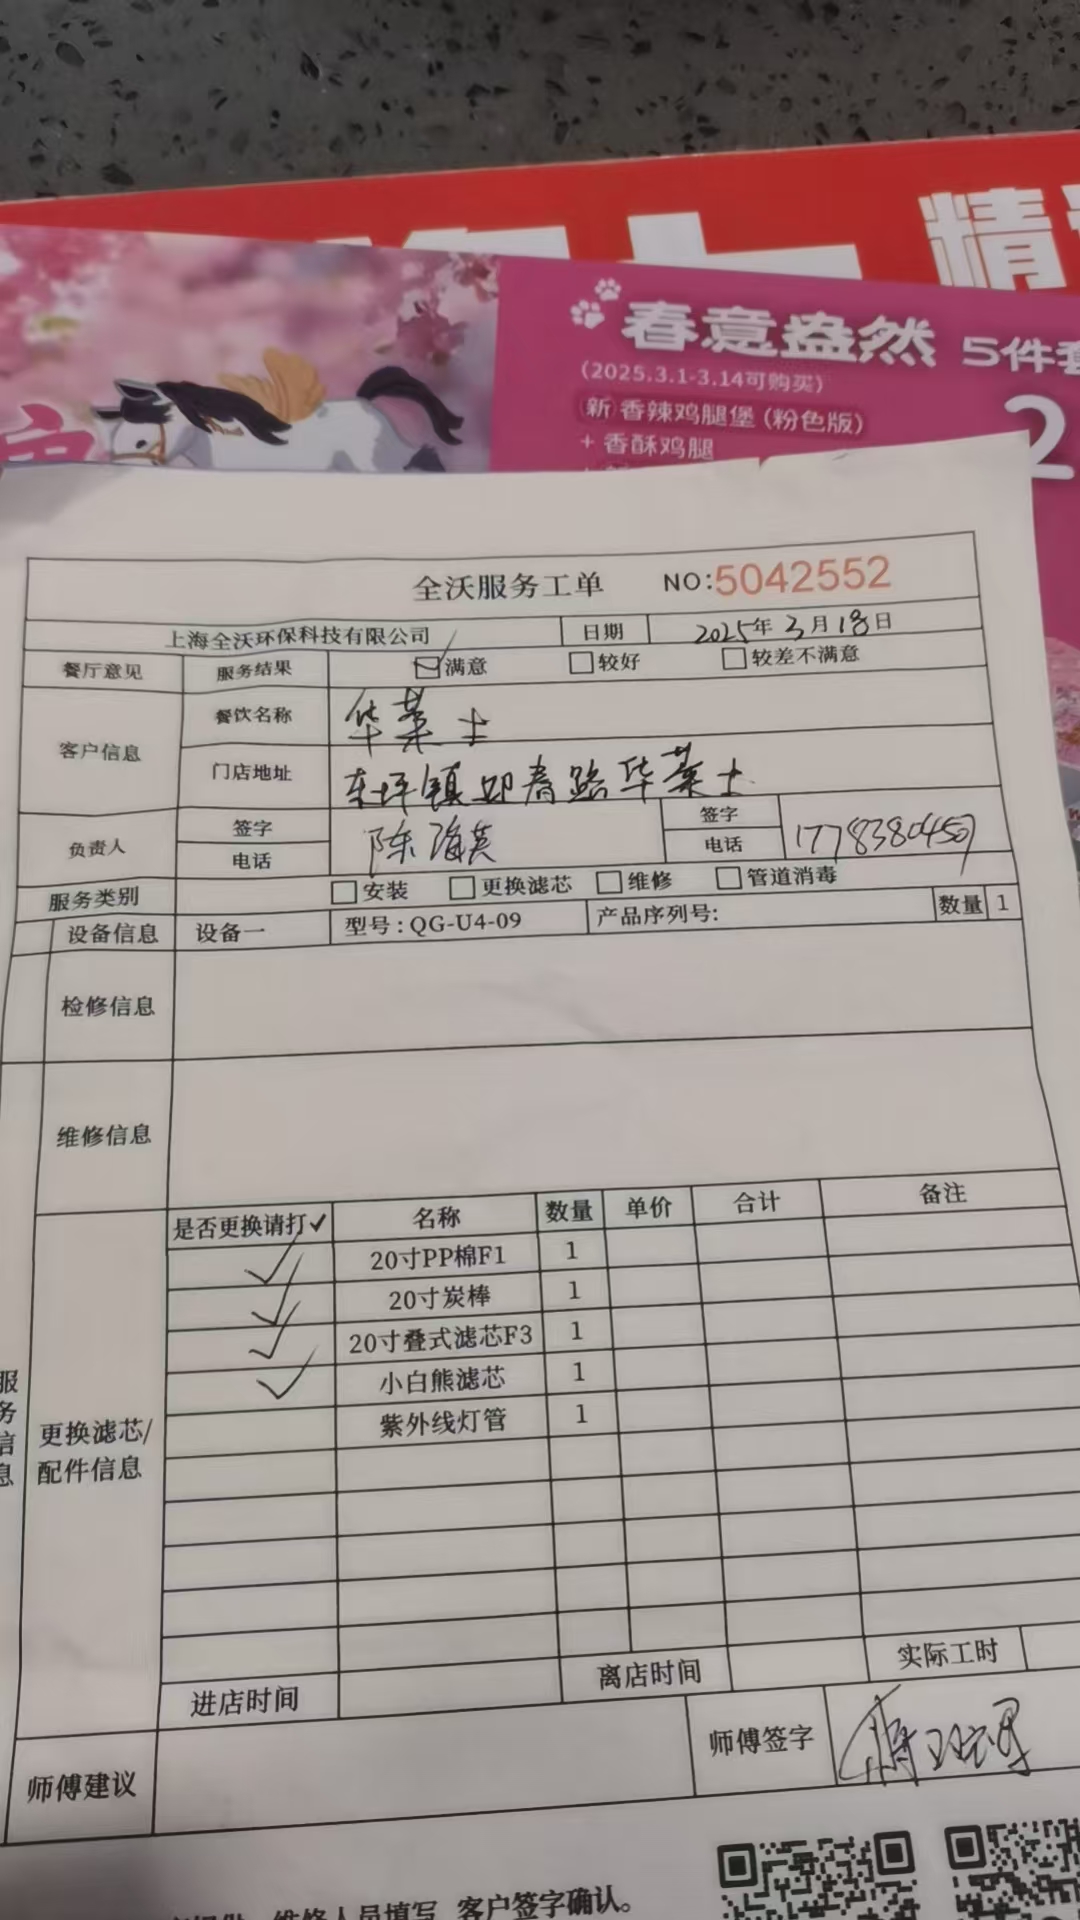 精
春意盎然 5件套
(2025.3.1-3.14可购买)
新 香辣鸡腿堡 (粉色版)
+ 香酥鸡腿
2
全沃服务工单 NO:5042552
上海全沃环保科技有限公司 日期 2025年3月18日
餐厅意见 服务结果 满意 较好 较差不满意
客户信息 餐饮名称 华莱士
门店地址 东坪镇迎春路华莱士
负责人 签字 陈海英 签字
电话 电话 17783380457
服务类别 安装 更换滤芯 维修 管道消毒
设备信息 设备一 型号:QG-U4-09 产品序列号: 数量 1
检修信息
维修信息
是否更换请打✓ 名称 数量 单价 合计 备注
✓ 20寸PP棉F1 1
✓ 20寸炭棒 1
✓ 20寸叠式滤芯F3 1
✓ 小白熊滤芯 1
紫外线灯管 1
服务信息
更换滤芯/
配件信息
进店时间 离店时间 实际工时
师傅建议 师傅签字
维修人员填写 客户签字确认。